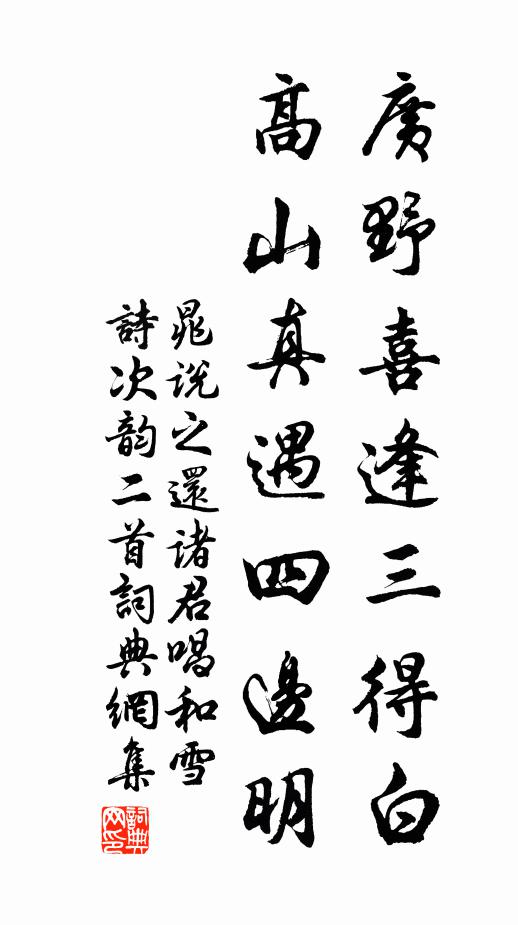 廣野喜逢三得白
高山真遇四邊明
晁說之還諸君唱和雪
詩次韵二首詞典網集
詞典网印